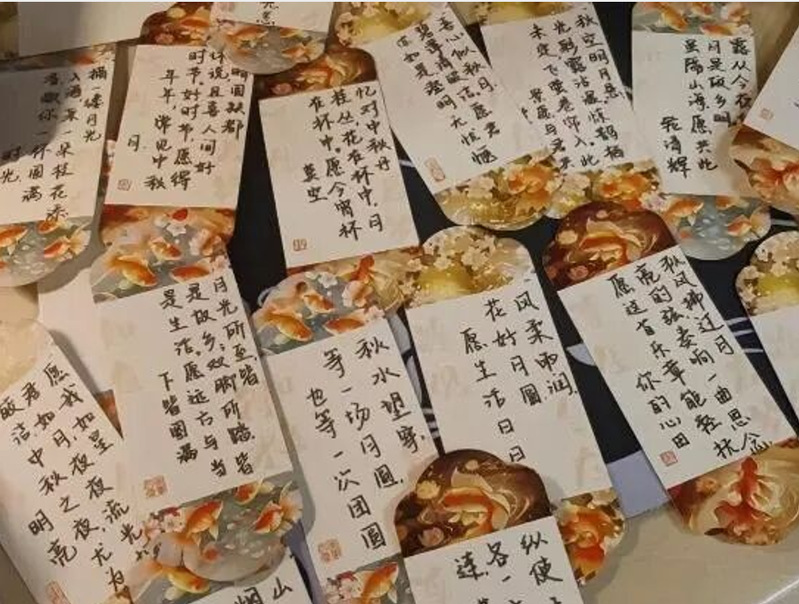 摘一缕月光
入酒,采一朵桂花添
香,敬你一杯圆满
时光
晴圆缺都
休说,且喜人间好
时节,好时节,愿得
年年,常见中秋
月
忆对中秋丹
桂丛,花在杯中,月
在杯中,愿今宵杯
莫空
吾心似秋月,
碧潭清皎洁,愿君
亦如是,澄明无忧愁
秋空明月悬,
光彩露沾湿,惊鹊栖
未定,飞萤卷帘入,此
景愿与君共
露从今夜
月是故乡明
虽隔山海,愿共此
轮清辉
愿我如星
君如月,夜夜流光
洁,中秋之夜,尤为
明亮
月光所至皆
是故乡,双脚所踏皆
是生活,愿远方与当
下皆圆满
秋水望穿,
等一场月圆,
也等一次团圆
风柔雨润,
花好月圆
愿生活日日
秋风拂过月
亮的弦,奏响一曲思念
愿这首乐章能轻抚
你的心田
纵使
各一
连